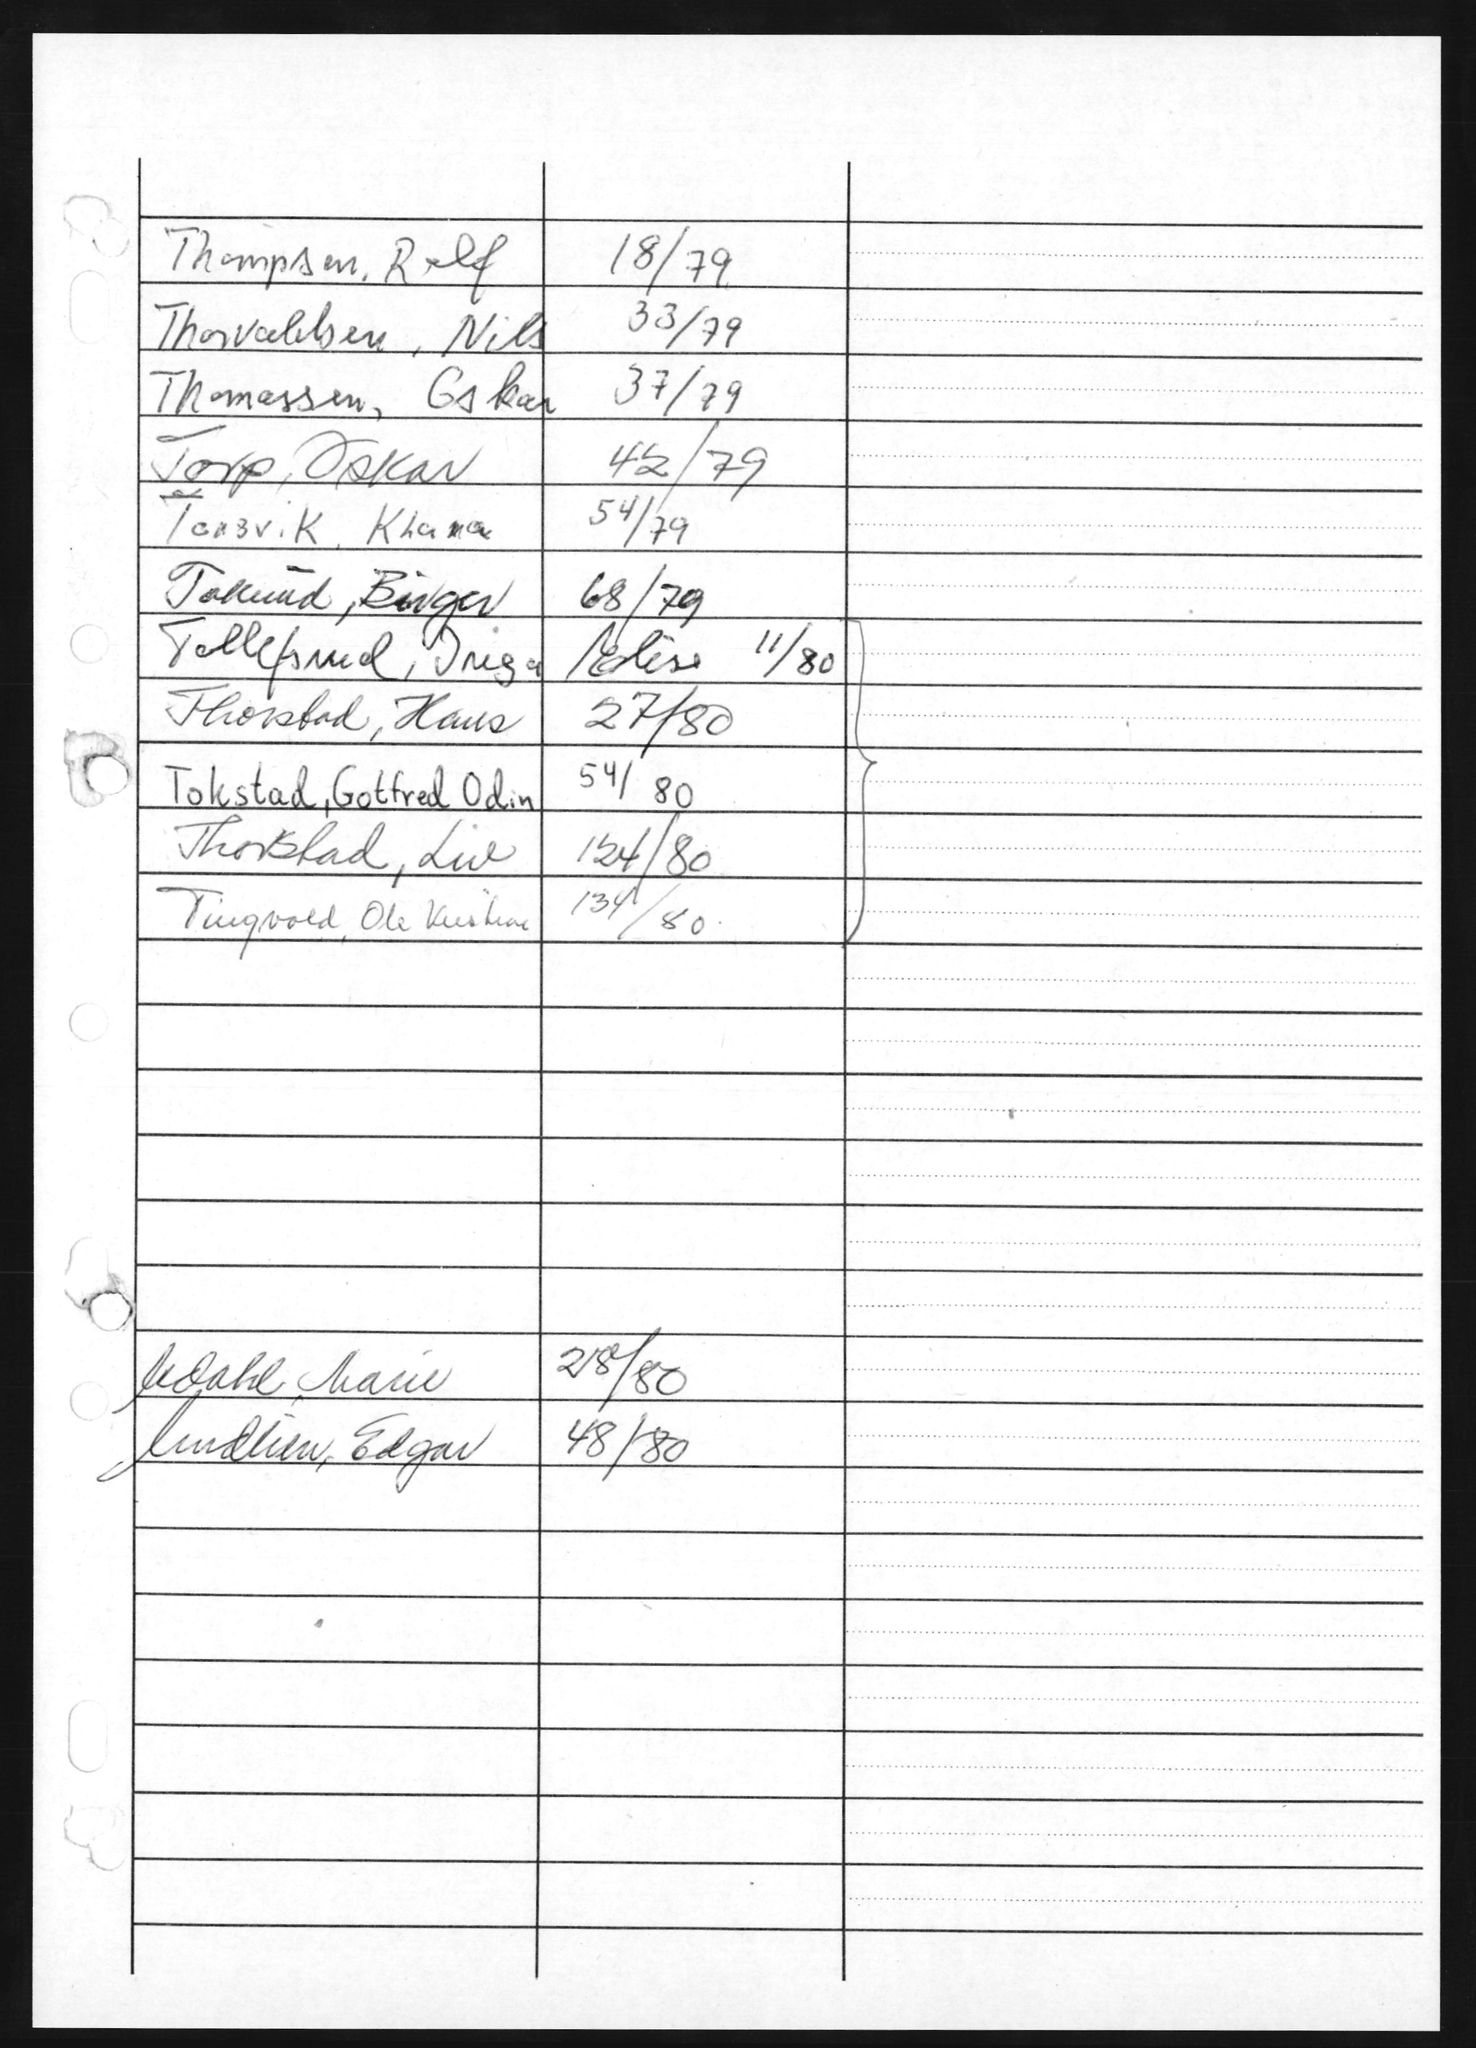 Thompson, Rolf 18/79
Thorvaldsen, Nils 33/79
Thomassen, Oskar 37/79
Torp, Oskar 42/79
54/79
Birger 68/79
Tollefsrud, Inga 11/80
Thorstad, Hans 27/80
Tokstad, Gotfred Odin 54/80
Thorstad, Liv 124/80
Tingvold, Ole Kristian 134/80
Udahl, Marie 28/80
Undlien, Edgar 48/80